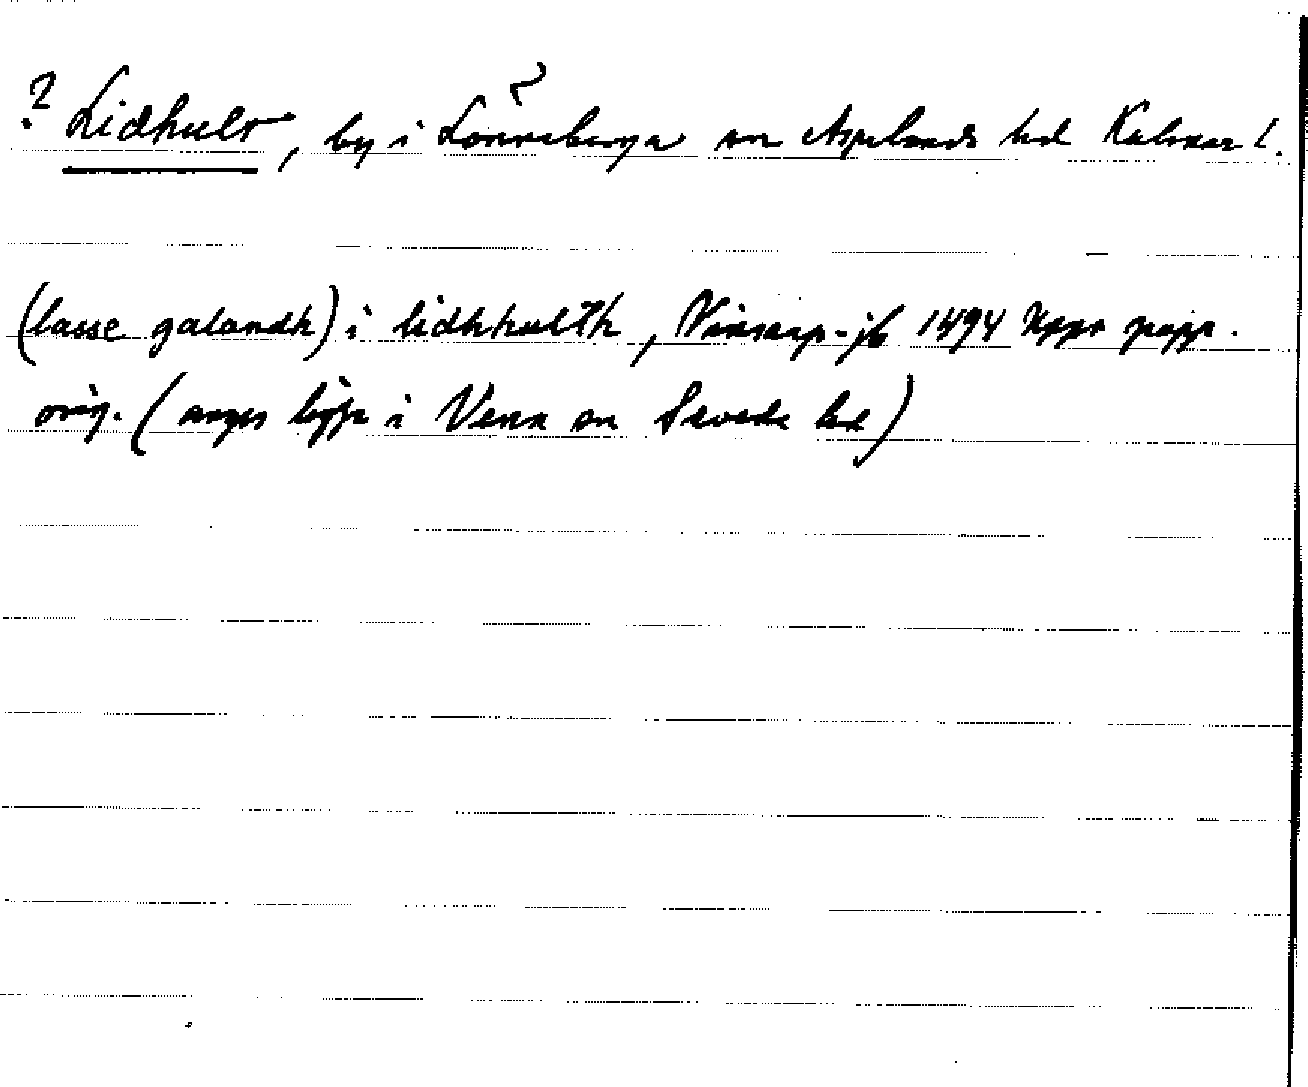 ? Lidhult, by i Lönneberga sn Aspelands hd Kalmar l.
(lasse galandh) i lidhhulth, Vinstorp-jb 1494 Uppr papp.
orig. (anges ligga i Vena sn Sevede hd)